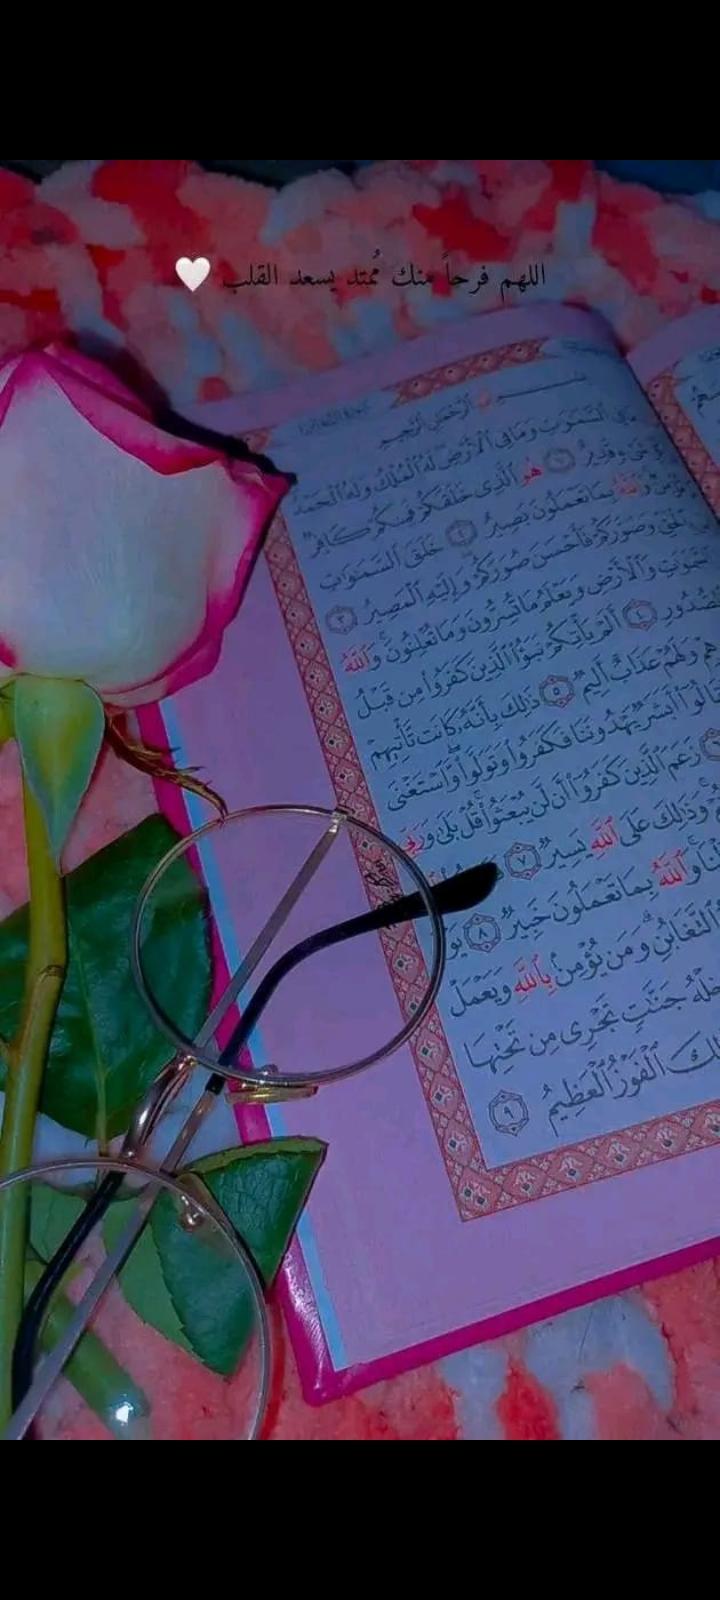 اللهم فرحاً منك مُمتد يسعد القلب 🤍
الرَّحْمَٰنِ الرَّحِيمِ
السَّمَٰوَٰتِ وَمَا فِى الْأَرْضِ لَهُ الْمُلْكُ وَلَهُ الْحَمْدُ
قَدِيرٌ ١ هُوَ الَّذِى خَلَقَكُمْ فَمِنكُمْ كَافِرٌ
وَاللَّهُ بِمَا تَعْمَلُونَ بَصِيرٌ ٢ خَلَقَ السَّمَٰوَٰتِ
وَصَوَّرَكُمْ فَأَحْسَنَ صُوَرَكُمْ وَإِلَيْهِ الْمَصِيرُ ٣
وَالْأَرْضِ وَيَعْلَمُ مَا تُسِرُّونَ وَمَا تُعْلِنُونَ وَاللَّهُ
الصُّدُورِ ٤ أَلَمْ يَأْتِكُمْ نَبَؤُا الَّذِينَ كَفَرُوا مِن قَبْلُ
وَلَهُمْ عَذَابٌ أَلِيمٌ ٥ ذَٰلِكَ بِأَنَّهُ كَانَت تَّأْتِيهِمْ
أَبَشَرٌ يَهْدُونَنَا فَكَفَرُوا وَتَوَلَّوا وَّاسْتَغْنَى
زَعَمَ الَّذِينَ كَفَرُوا أَن لَّن يُبْعَثُوا قُلْ بَلَىٰ وَرَبِّى
وَذَٰلِكَ عَلَى اللَّهِ يَسِيرٌ ٧
وَاللَّهُ بِمَا تَعْمَلُونَ خَبِيرٌ ٨
التَّغَابُنِ وَمَن يُؤْمِنْ بِاللَّهِ وَيَعْمَلْ
جَنَّٰتٍ تَجْرِى مِن تَحْتِهَا
الْفَوْزُ الْعَظِيمُ ٩